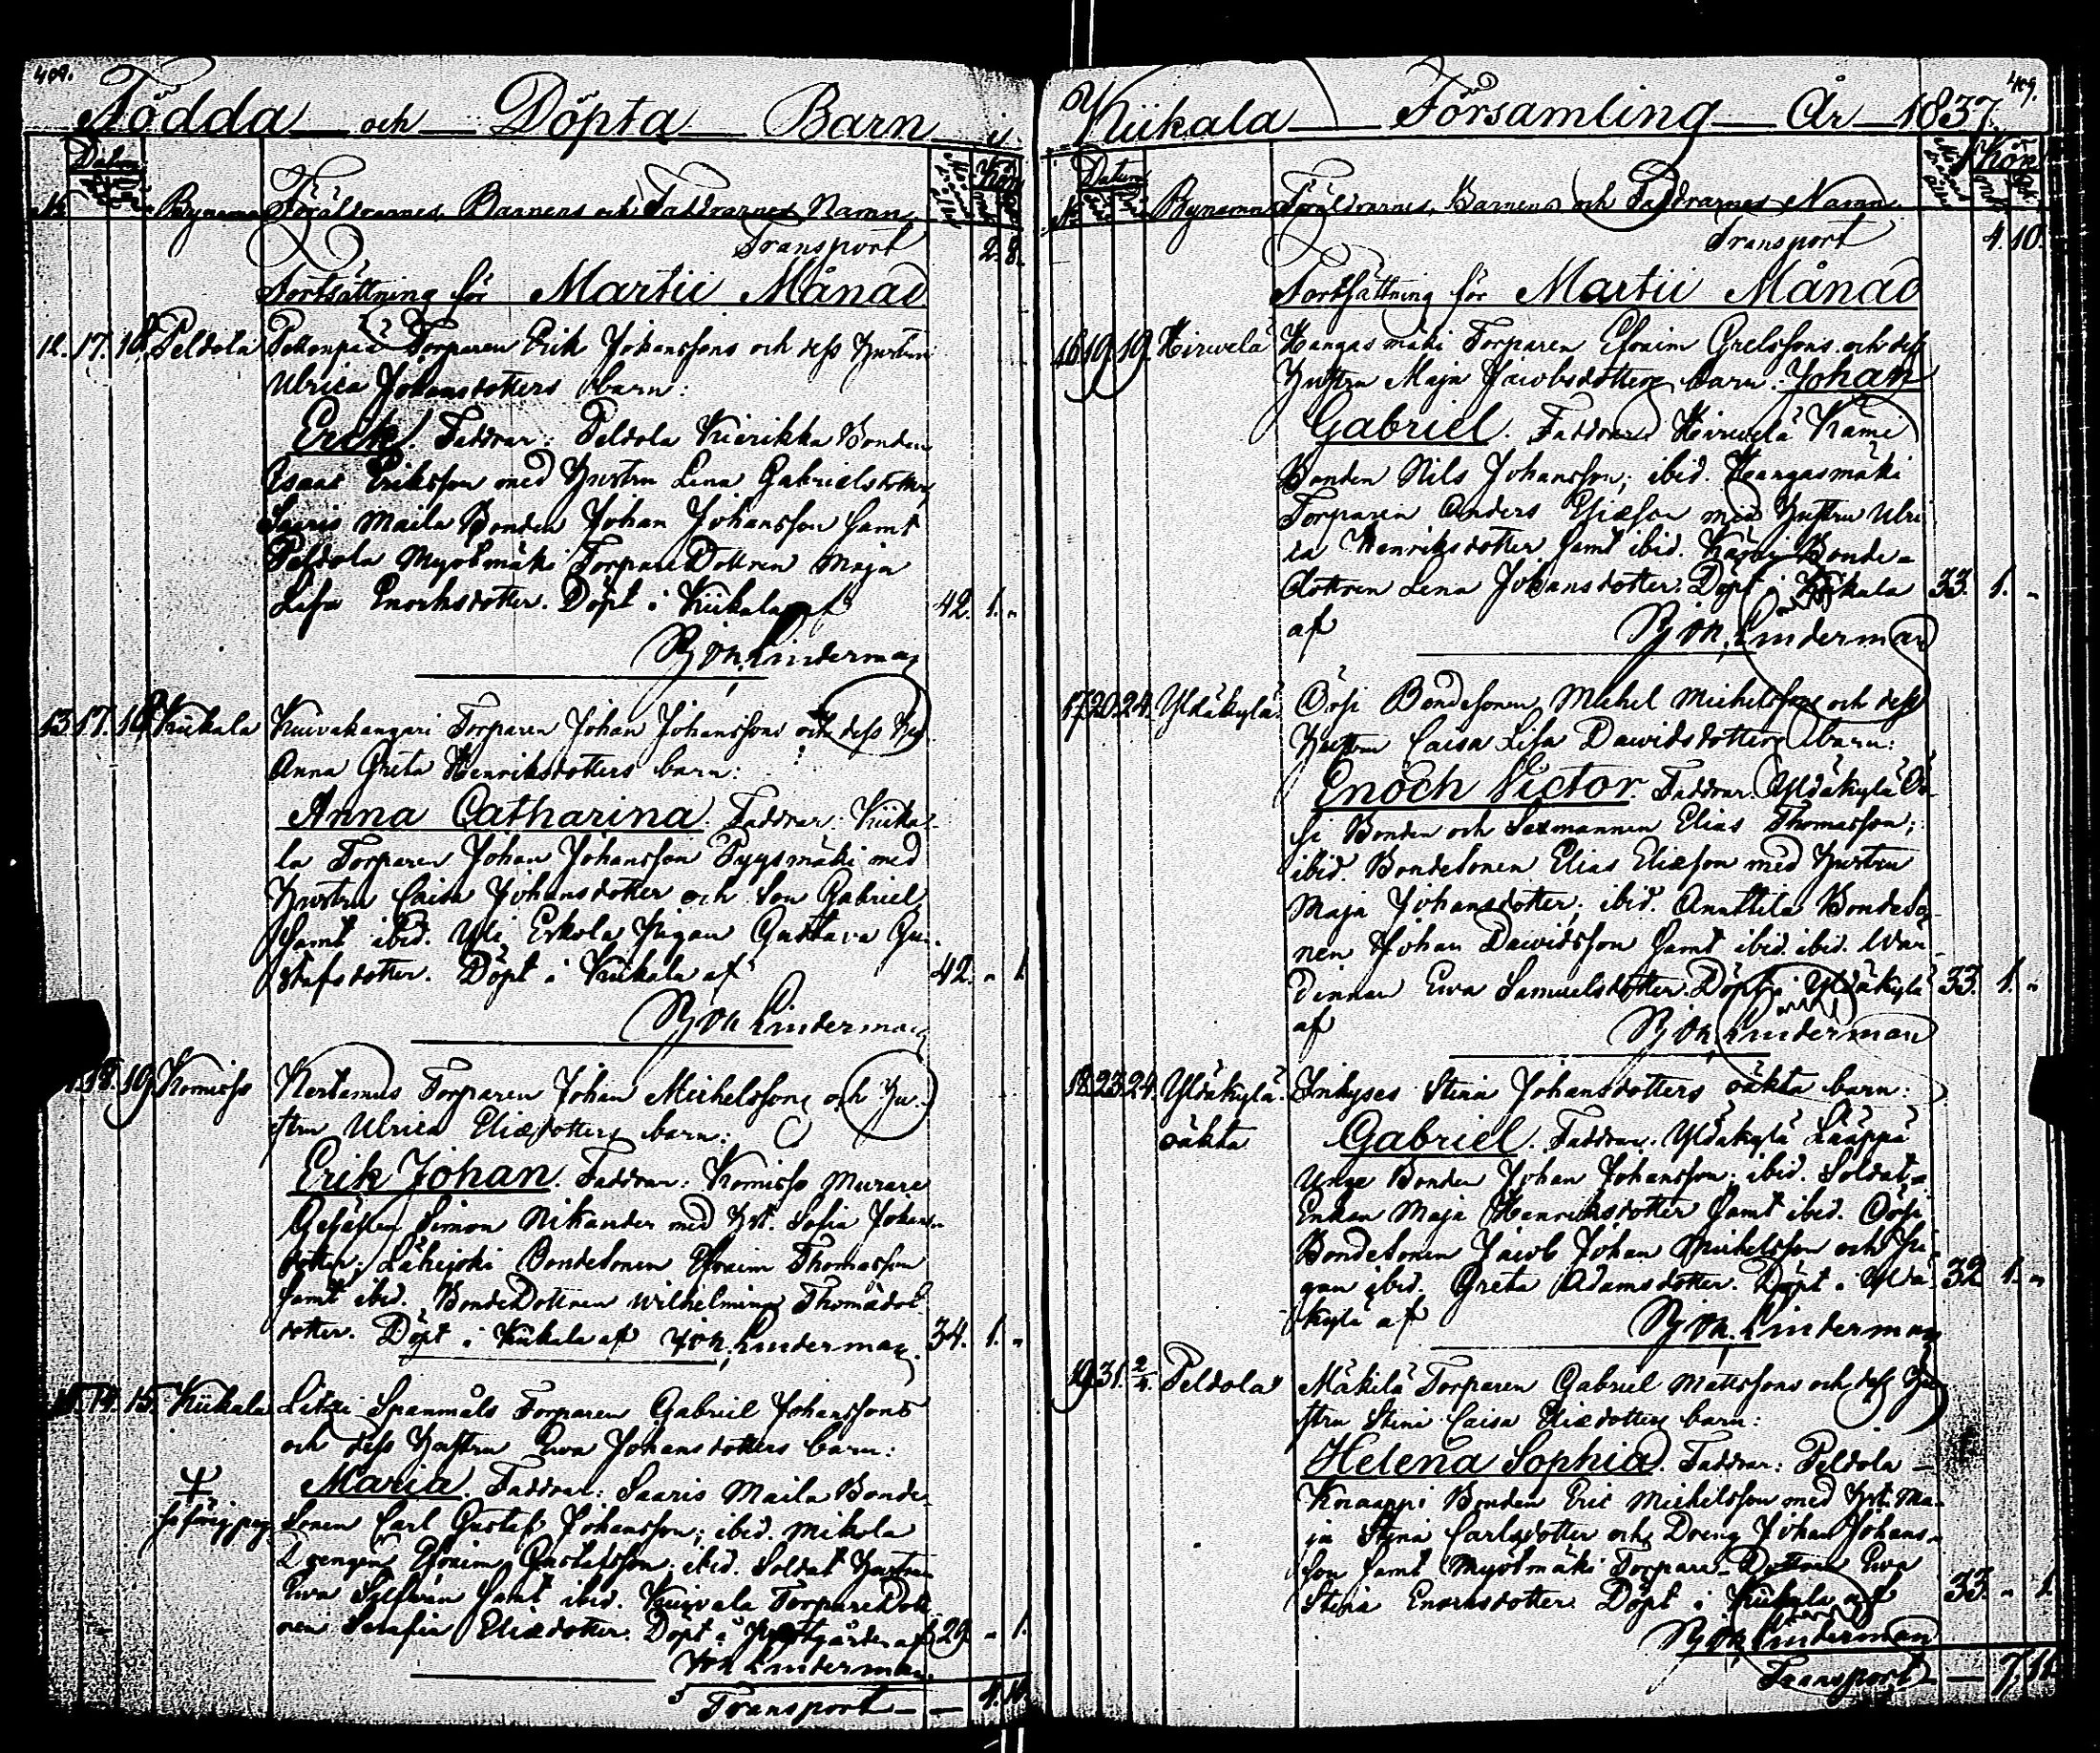 409.
Födda och Döpta Barn i
Datum
No Bynamn Föräldrarnes, Barnens och Faddrarnes Namn Kön
Transport 2. 8.
Fortsättning för Martii Månad
12. 17. 18. Peldola Torparen Erik Johanssons och dess hustru
Ulrica Johansdotters barn:
Erik. Faddrar: Peldola Kierikka Bonden
Esaias Eriksson med hustru Lena Gabrielsdotter
Saaris Maila Bonden Johan Johansson samt
Peldola Myötmäki Torpare Dottren Maja
Lisa Enochsdotter. Döpt i Kiikala af 42. 1. "
Joh. Linderman
13. 17. 18. Kiikala Kuivakangari Torparen Johan Johanssons och dess hu.
Anna Greta Henriksdotters barn:
Anna Catharina. Faddrar: Kiika-
la Torparen Johan Johansson Pyysmäki med
hustru Caisa Johansdotter och Son Gabriel
samt ibid. Yli Erkola Pigan Gustava Gu-
stafsdotter. Döpt i Kiikala af 42. " 1.
Joh. Linderman
18. 19. Komisso Kortamus Torparen Johan Michelssons och hu-
stru Ulrica Eliædotters barn:
Erik Johan. Faddrar: Komisso Murare
Gesällen Simon Nikander med hst. Sofia Johans-
dotter; Lähijoki Bondesonen Efraim Thomasson
samt ibid. BondeDottren Wilhelmina Thomædot-
dotter. Döpt i Kiikala af Joh. Linderman. 34. 1. "
15. 14. 15. Kiikala Spanmåls Torparen Gabriel Johanssons
och dess hustru Ewa Johansdotters barn:
Maria. Faddrar: Saaris Maila Bonde-
sonen Carl Gustaf Johansson; ibid. Mikola
Drengen Efraim Gustafsson, ibid. Soldat hustrun
Ewa samt ibid. Torpare Dott-
ren Serafia Eliædotter. Döpt i af 29. " 1.
Joh. Linderman.
Transport 4. 10.
409.
Kiikala Församling År 1837.
Datum
No Bynamn Föräldrarnes, Barnens och Faddrarnes Namn Kön
Transport 4. 10.
Fortsättning för Martii Månad
16. 19. 19. Hirwelä Hangasmäki Torparen Efraim Grelssons och dess
hustru Maja Jacobsdotters barn: Johan
Gabriel. Faddrar: Hirwelä Kämi
Bonden Nils Johansson; ibid. Hangasmäki
Torparen Anders Eliæson med hustru Ulri
ca Henriksdotter samt ibid. Kämi Bonde-
dottren Lena Johansdotter. Döpt i Kiikala 33. 1. "
af Joh. Linderman
17. 20. 24. Yldäkylä Örsi Bondesonen Michel Michelssons och dess
hustru Caisa Lisa Dawidsdotters barn:
Enoch Victor. Faddrar: Yldäkylä Ör-
si Bonden och Sexmannen Elias Thomasson;
ibid. Bondesonen Elias Eliæson med hustru
Maja Johansdotter; ibid. Anttila Bondeso-
nen Johan Dawidsson samt ibid. ibid. Wär-
dinnan Ewa Samuelsdotter. Döpt i Yldäkylä 33. 1. "
af Joh. Linderman
18. 23. 24. Yldäkylä Inhyses Stina Johansdotters oäkta barn:
oäkta Gabriel. Faddrar: Yldäkylä Lääppä
Unge Bonden Johan Johansson; ibid. Soldat-
Enkan Maja Henriksdotter samt ibid. Örsi
Bondesonen Jacob Johan Michelsson och Pi-
gan ibid. Greta Adamsdotter. Döpt i Yldä- 32 1. "
kylä af Joh. Linderman
19. 31. 2/4. Peldola Mäkilä Torparen Gabriel Matssons och dess hu-
stru Stina Caisa Eliædotters barn:
Helena Sophia. Faddrar: Peldola
Knaappi Bonden Eric Michelsson med hst. Ma-
ja Stina Carlsdotter och Dreng Johan Johans-
son samt Myötmäki Torpare-Dottren Ewa
Stina Enochsdotter. Döpt i Kiikala af 33. " 1.
Joh. Linderman
Transport — 7. 11.